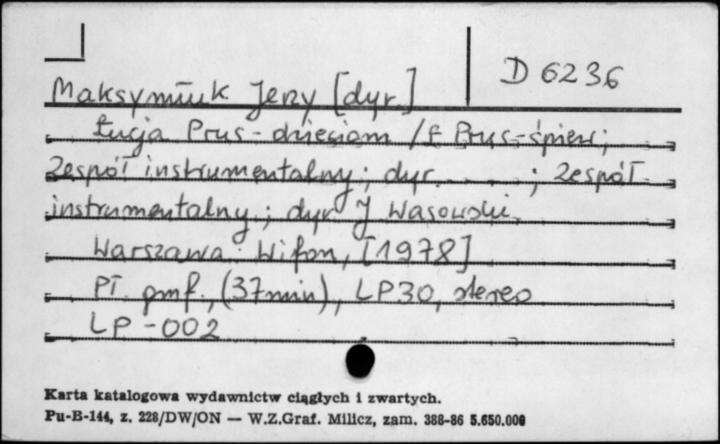 D 6236
Maksymiuk Jerzy [dyr.]
Łucja Prus - dzieciom / Ł Prus - śpiew;
Zespół instrumentalny; dyr. . . . . ; Zespół
instrumentalny; dyr J Wasowski.
Warszawa: Wifon, [1978]
Pł. gmf., (37 min), LP30, stereo
LP - 002
Karta katalogowa wydawnictw ciągłych i zwartych.
Pu-B-144, z. 228/DW/ON — W.Z.Graf. Milicz, zam. 388-86 5.650.000